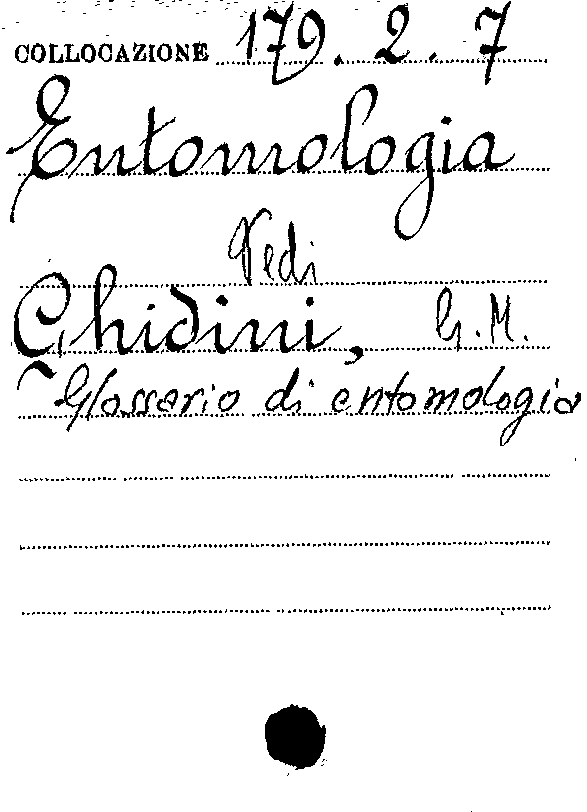 COLLOCAZIONE 179. 2. 7
Entomologia
Vedi
Ghidini, G. M.
Glossario di entomologia